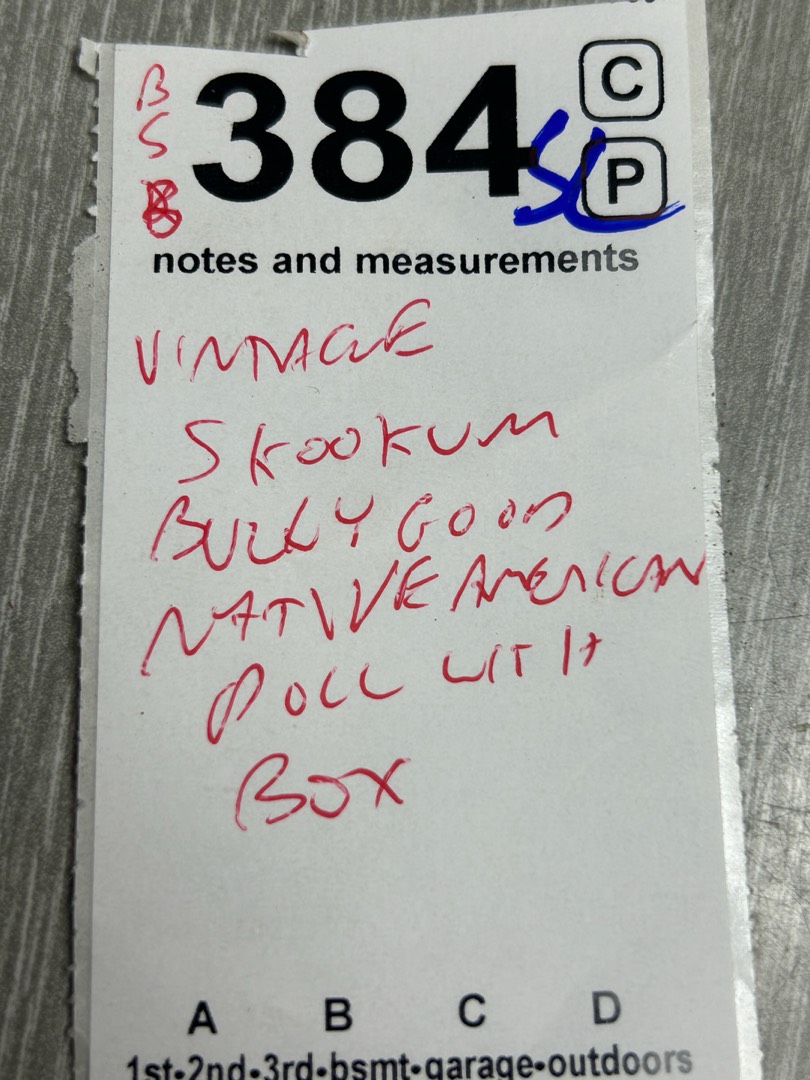 B
S
384
C
SL
P
notes and measurements
VINTAGE
SKOOKUM
BULLY GOOD
NATIVE AMERICAN
DOLL WITH
BOX
A B C D
1st•2nd•3rd•bsmt•garage•outdoors